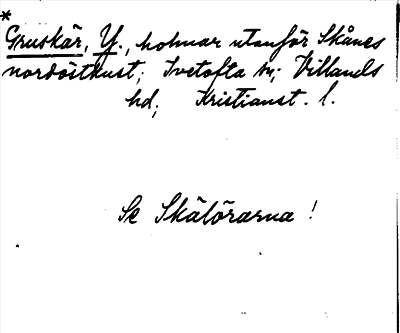 *
Gruskär, Y., holmar utanför Skånes
nordöstkust; Ivetofta sn; Villands
hd; Kristianst. l.
Se Skälörarna!